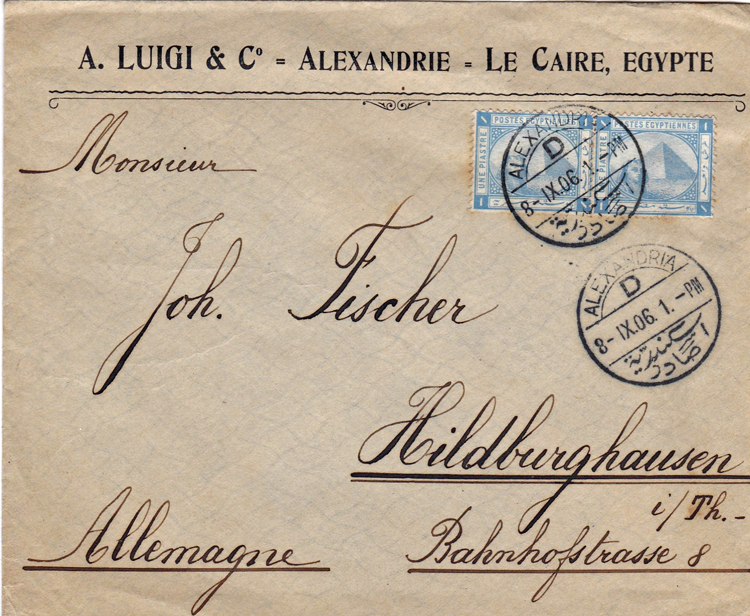 A. LUIGI & Cº = ALEXANDRIE = LE CAIRE, EGYPTE
POSTES EGYPTIENNES
UNE PIASTRE
ALEXANDRIA
D
8-IX.06.1.-PM
Monsieur
Joh. Fischer
ALEXANDRIA
D
8-IX.06.1.-PM
اسكندرية
صادر
Hildburghausen
i/Th.-
Allemagne
Bahnhofstrasse 8